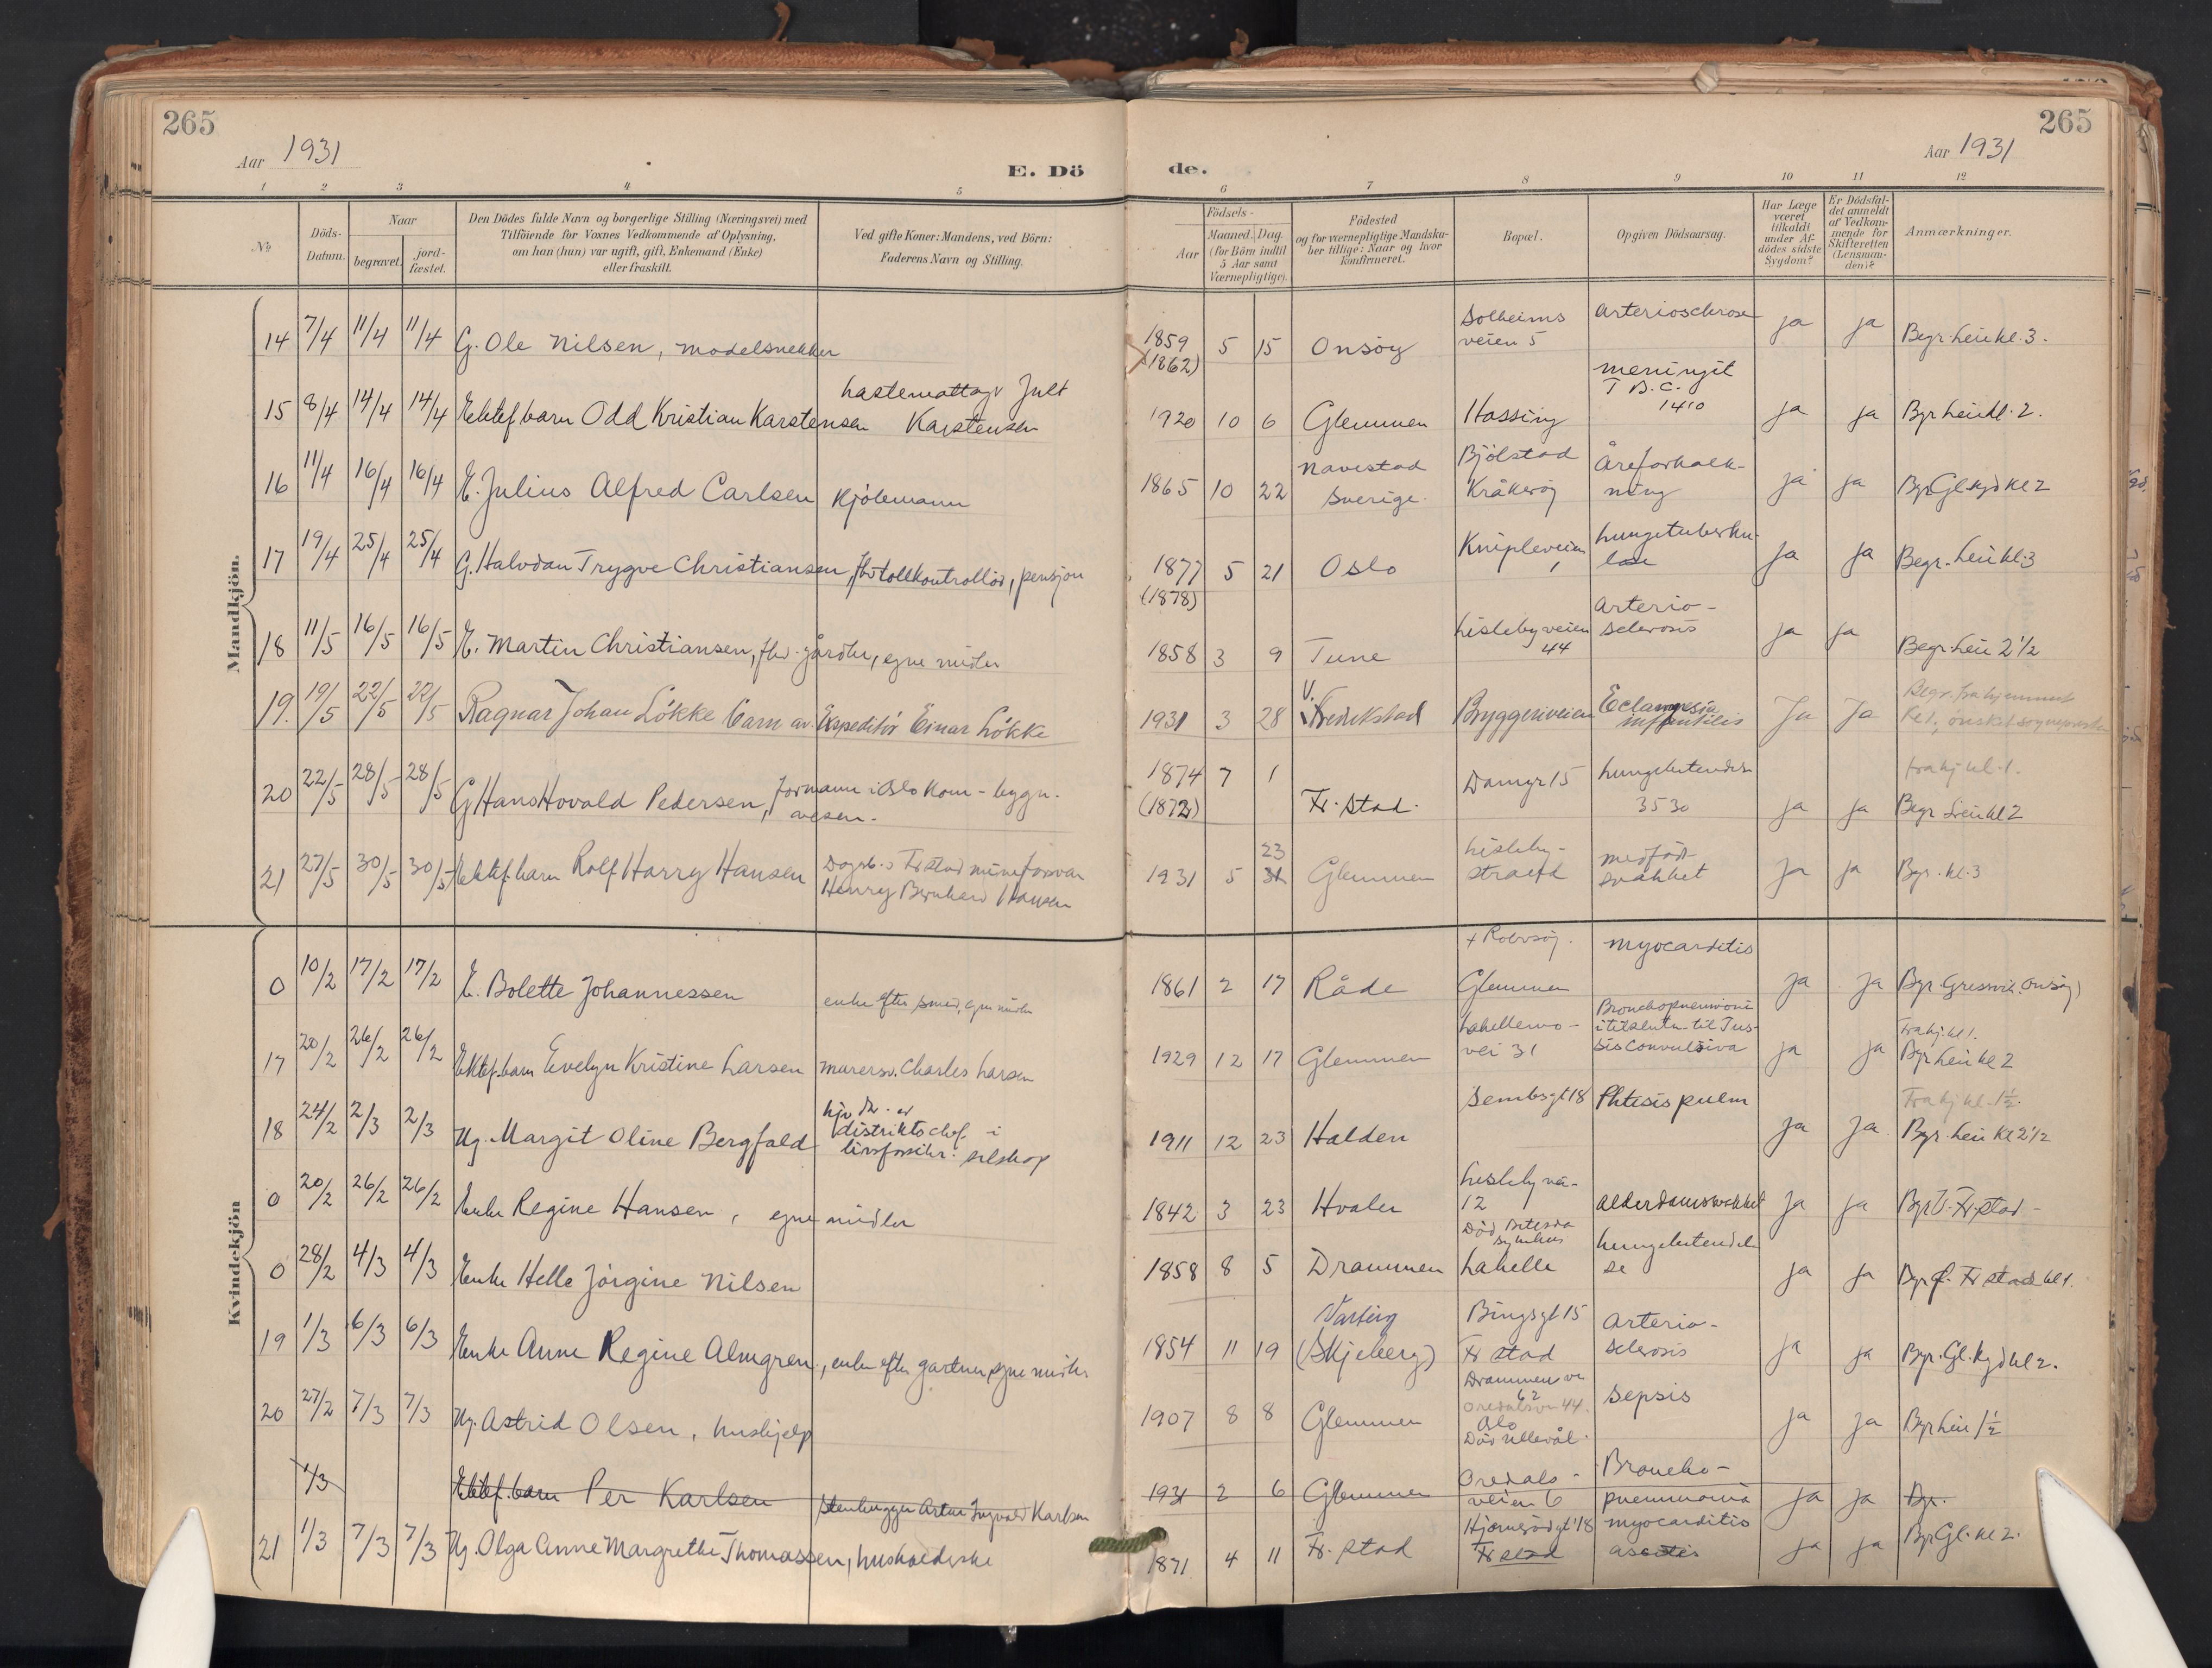 265
265
Aar 1931
E. Dö de.
Aar 1931
1 2 3 4 5 6 7 8 9 10 11 12
№
Döds-Datum.
Naar
begravet.
jord-fæstet.
Den Dödes fulde Navn og borgerlige Stilling (Næringsvei) med
Tilföiende for Voxnes Vedkommende af Oplysning,
om han (hun) var ugift, gift, Enkemand (Enke)
eller fraskilt.
Ved gifte Koner: Mandens, ved Börn:
Faderens Navn og Stilling.
Födsels-
Aar
Maaned. Dag.
(for Börn indtil
5 Aar samt
Værnepligtige).
Födested
og for værnepligtige Mandska-
ber tillige: Naar og hvor
konfirmeret.
Bopæl.
Opgiven Dödsaarsag.
Har Læge
været
tilkaldt
under Af-
dödes sidste
Sygdom?
Er Dödsfal-
det anmeldt
af Vedkom-
mende for
Skifteretten
(Lensman-
den)?
Anmærkninger.
Mandkjön.
14 7/4 11/4 11/4 G. Ole Nilsen, modelsnekker 1859 (1862) 5 15 Onsøy Solheims veien 5 Arteriosclerose ja ja Begr. Leie kl. 3.
15 8/4 14/4 14/4 Ektef barn Odd Kristian Karstensen Karstensen 1920 10 6 Glemmen Hassing meningit T.B.C. 1410 ja ja Bgr Leie kl. 2.
16 11/4 16/4 16/4 E. Julius Alfred Carlsen Kjölemann 1865 10 22 Navestad Sverige. Bjölstad Kråkeröy Åreforkalk-ning ja ja Bgr Gl. kgd kl 2
17 19/4 25/4 25/4 G. Halvdan Trygve Christiansen, fhv tollkontrollör, pensjon 1877 (1878) 5 21 Oslo Knipleveien lungetuberku-lose ja ja Begr. Leie kl. 3
18 11/5 16/5 16/5 E. Martin Christiansen, fhv. gårdbr, egne midler 1858 3 9 Tune Lislebyveien 44 Arterio-sclerosis ja ja Begr. Leie 2 1/2
19. 19/5 22/5 22/5 Ragnar Johan Lökke barn av Expeditör Einar Lökke 1931 3 28 V. Fredrikstad Bryggeriveien Eclampsia infantilis Ja Ja Begr. fra hjemmet
20 22/5 28/5 28/5 G Hans Hovald Pedersen, formann i Oslo kom-bygn. vesen. 1874 7 1 Fr. stad. Damgt 15 lungebetendelse 3530 ja ja fra hj kl. 1. Begr Leie kl 2
21 27/5 30/5 30/5 Ektef. barn Rolf Harry Hansen Henry Bernhard Hansen 1931 5 23 Glemmen Lisleby-stræde medfödt svakhet ja ja Bgr. kl. 3
Kvindekjön
0 10/2 17/2 17/2 E. Bolette Johannessen enke efter smed, egne midler 1861 2 17 Råde + Rolvsöy. Glemmen myocarditis ja ja Bgr Gressvik (Onsøy)
17 20/2 26/2 26/2 Ektef. barn Evelyn Kristine Larsen murersv. Charles Larsen 1929 12 17 Glemmen vei 31 Bronchopneumoni til Tus-sis convulsiva ja ja Fra hj. kl 1. Bgr Leie kl 2
18 24/2 2/3 2/3 Ug. Margit Oline Bergfald distriktschef i livsforsikr. selskap 1911 12 23 Halden Sembsgt 18 Phtisis pulm ja ja Fra hj kl. 1 1/2. Bgr. Leie kl 2 1/2
0 20/2 26/2 26/2 Enke Regine Hansen, egne midler 1842 3 23 Hvaler Lisleby vei 12 alderdomssvakhet ja ja Bgr V. Fr. stad -
0 28/2 4/3 4/3 Enke Helle Jörgine Nilsen 1858 8 5 Drammen Lahelle lungebetendelse ja ja Bgr Fr stad kl 1.
19 1/3 6/3 6/3 Enke Anne Regine Almgren, enke efter gartner, egne midler 1854 11 19 Varteig (Skjeberg) Bingsgt 15 Fr stad Arterio-sclerosis ja ja Bgr. Gl. kgd kl 2.
20 27/2 7/3 7/3 Ug. Astrid Olsen, hushjelp 1907 8 8 Glemmen Drammensv 62 Oslo Död Ullevål. Sepsis ja ja Bgr Leie 1 1/2
1/3 Ektef. barn Per Karlsen Stenhugger Artur Ingvald Karlsen 1931 2 6 Glemmen Oredals-veien 6 Broncho-pneumonia ja ja Bgr.
21 1/3 7/3 7/3 Ug. Olga Anne Margrethe Thomassen, husholderske 1871 4 11 Fr. stad Fr stad myocarditis ja ja Bgr Gl. kl 2.